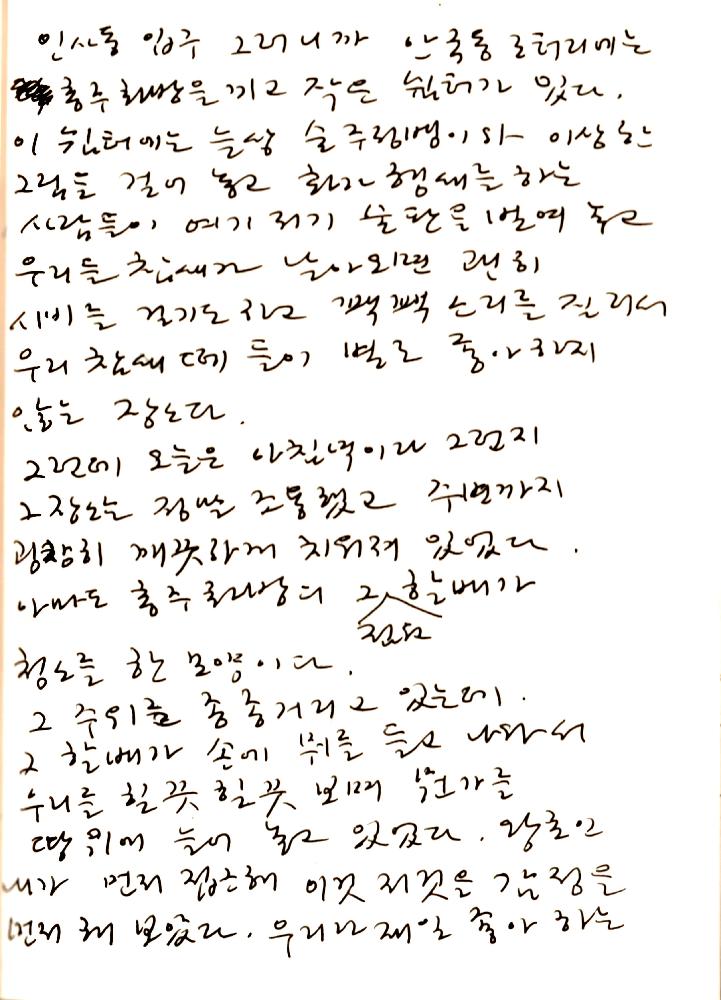 인사동 입구 그러니까 안국동 로터리에는
홍주화방을 끼고 작은 쉼터가 있다.
이 쉼터에는 늘상 술주정뱅이와 이상한
그림을 걸어 놓고 화가 행세를 하는
사람들이 여기 저기 술판을 벌여 놓고
우리들 참새가 날아오면 괜히
시비를 걸기도 하고 꽥꽥 소리를 질러서
우리 참새떼들이 별로 좋아하지
않는 장소다.
그런데 오늘은 아침녘이라 그런지
그 장소는 정말 조용했고 주변까지
굉장히 깨끗하게 치워져 있었다.
아마도 홍주화방의 그 할배가
청소를 한 모양이다.
그 주위를 종종거리고 있는데.
그 할배가 손에 뭐를 들고 나와서
우리를 힐끗힐끗 보며 뭔가를
땅 위에 늘어 놓고 있었다. 왕초인
내가 먼저 접근해 이것 저것을 감정을
먼저 해 보았다. 우리가 제일 좋아 하는